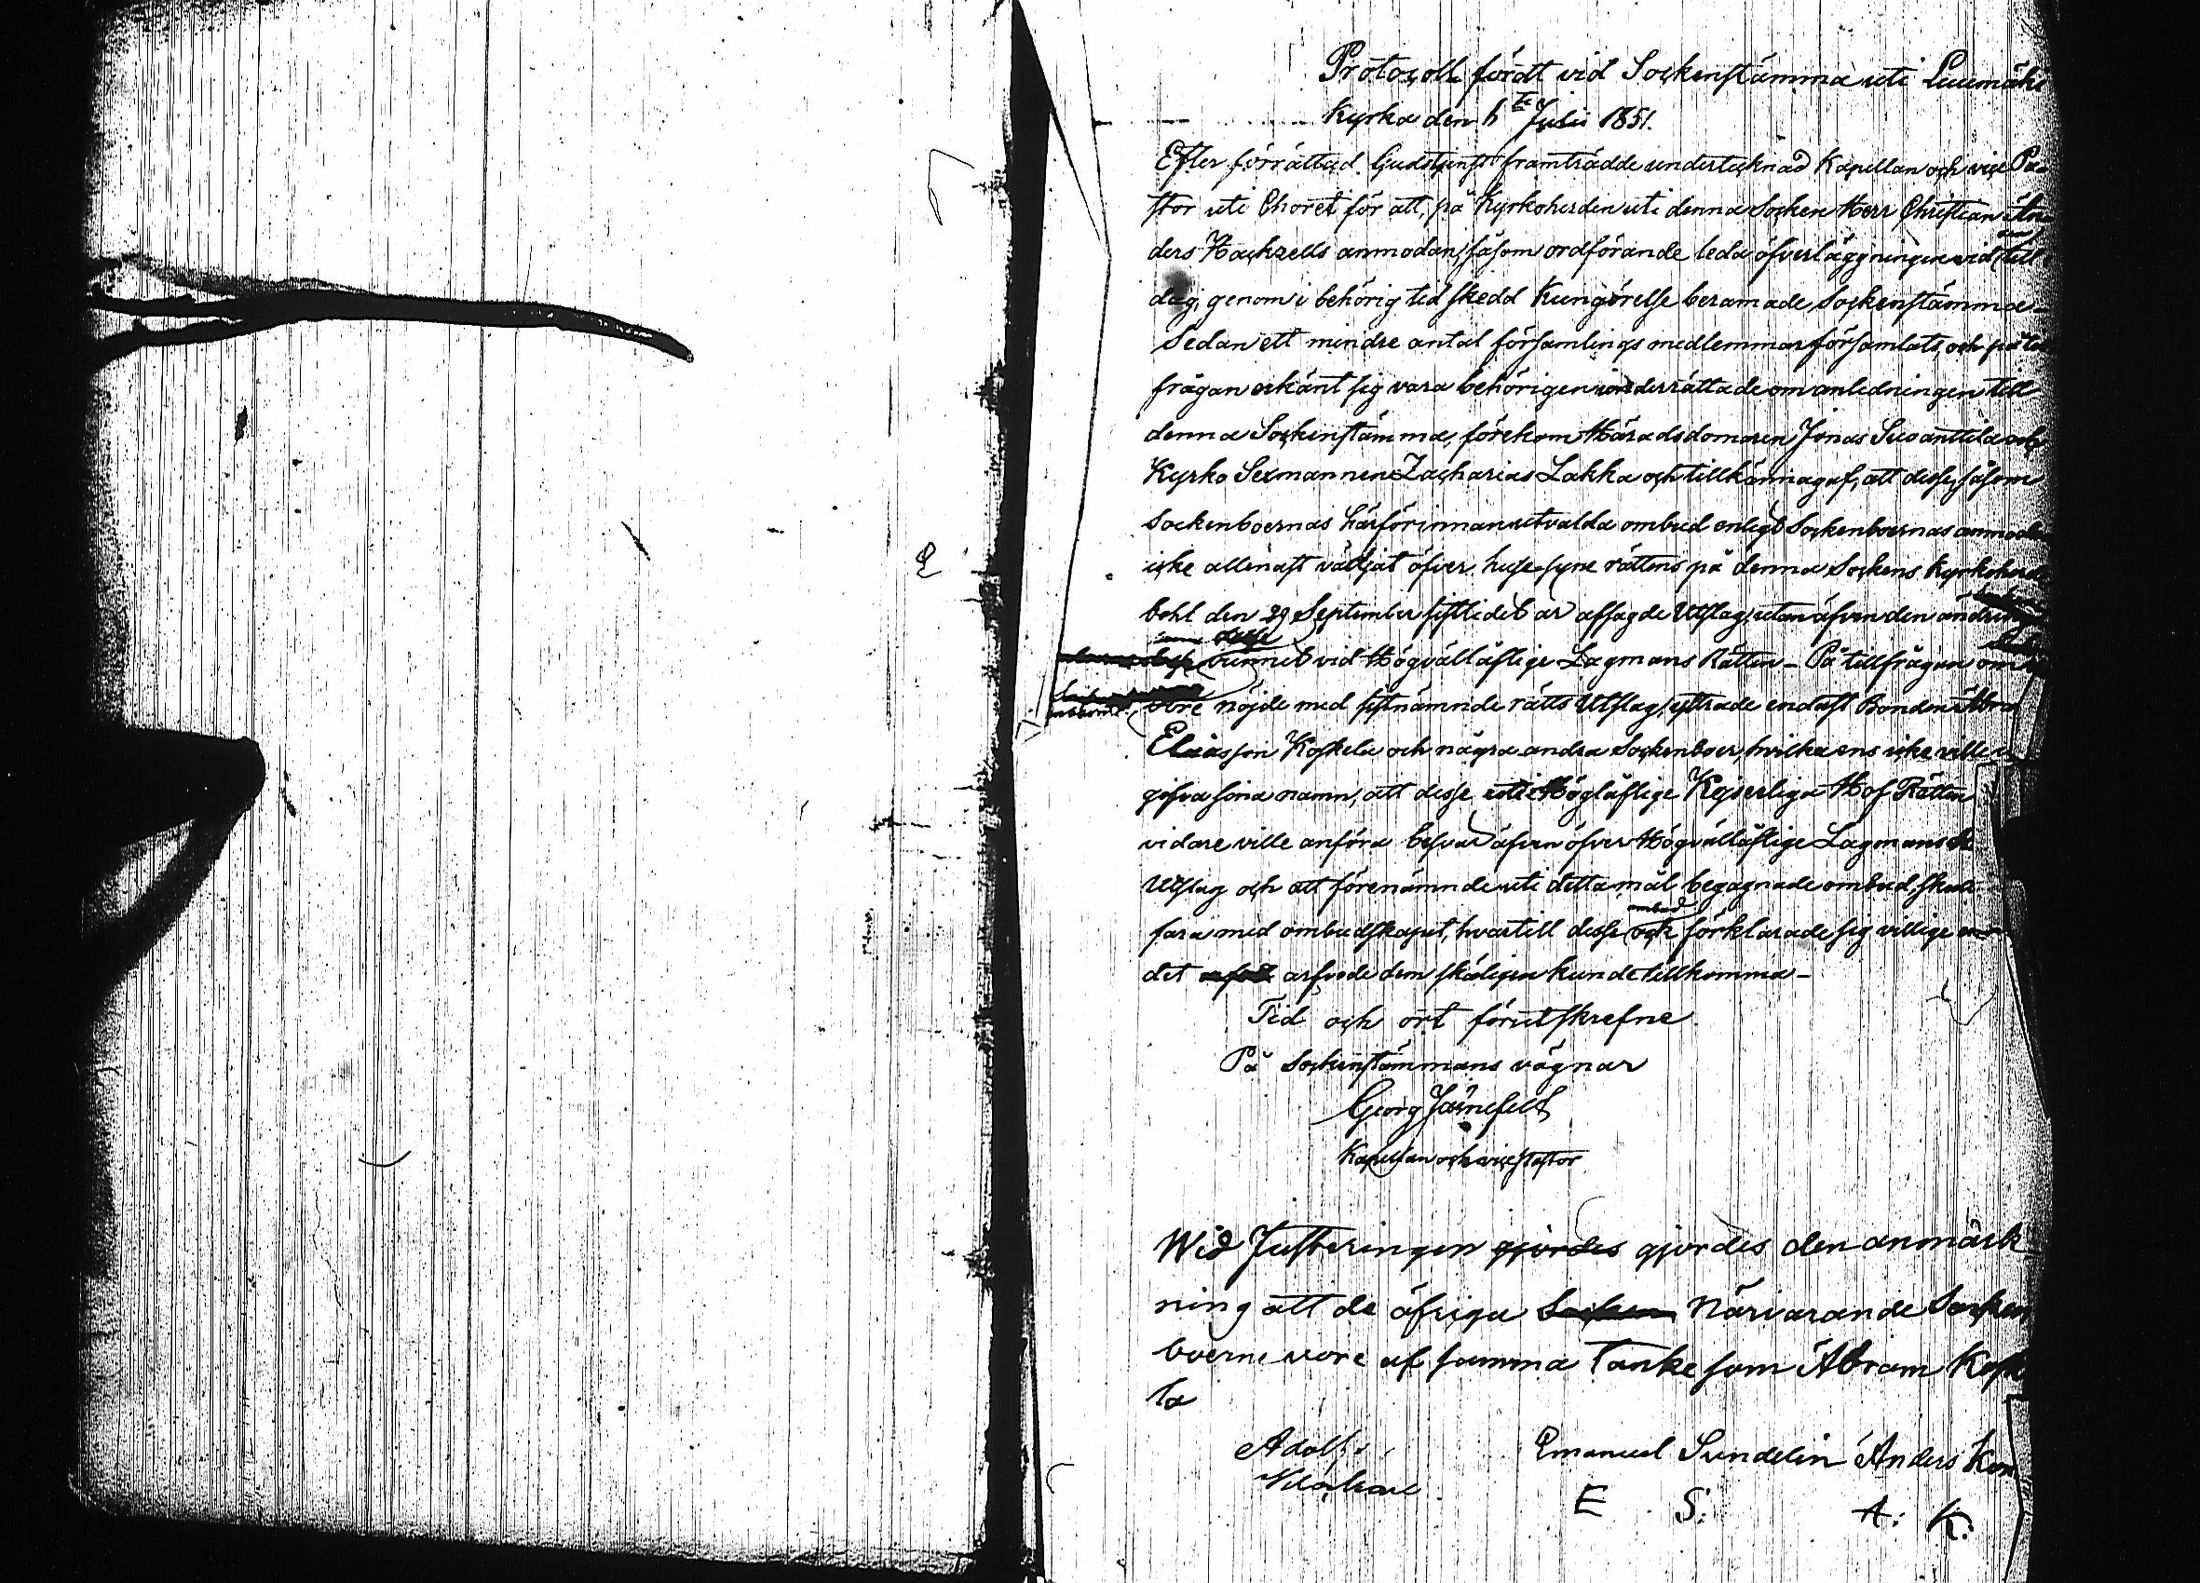 Protocoll fördt vid Sockenstämma uti Luumäki
Kyrka den Julii 1851.
Efter förrättad Gudstjenst framträdde undertecknad Kapellan och vice Pa-
stor uti Choret för att, på Kyrkoherden uti denna Socken Herr Christian An-
ders Hackzells anmodan, såsom ordförande leda öfverläggningen vid till
dag, genom i behörig tid skedd Kungörelse beramade Sockenstämma-
Sedan ett mindre antal församlings medlemmar församlats, och på till
frågan erkänt sig vara behörigen underrättade om anledningen till
denna Sockenstämma, förekom Häradsdomaren Jonas Suoanttila och
Kyrko Sexmannen Zacharias Lakka och tillkännagaf, att desse, såsom
Sockenboernas härförinnan utvalda ombud enligt Sockenboernas anmodan
icke allenast vädjat öfver husesyne rättens på denna Sockens Kyrkoherde
bohl den 29 September sistledet år afsagde Utslag, utan äfven den ändring
desse vunnet vid Högvällofliga Lagmans Rätten - På tillfrågan om
vore nöjde med sistnämnde rätts Utslag, yttrade endast Bonden Abra
Eliasson Koskela och några andra Sockenboer, hvilka ens icke ville
gifva sina namn, att desse uti Höglofliga Kejserliga Hof Rätten
vidare ville anföra besvär äfven öfver Högvällofliga Lagmans R
Utslag och att förenämnde uti detta mål begagnade ombud skulle
fara med ombudskapet, hvartill desse ombud och förklarade sig villige
det arfvode dem skäligen kunde tillkomma-
Tid och ort förutskrefne
På Sockenstämmans vägnar
Georg Järnefelt
Kapellan och vice Pastor
Wid Justeringen gjordes gjordes den anmärk
ning att de öfriga Socken Närvarande Socken
boerne vore af samma Tanke som Abram Koske
la
Adolf Emanuel Sundelin Anders Kon
E S: A: K: